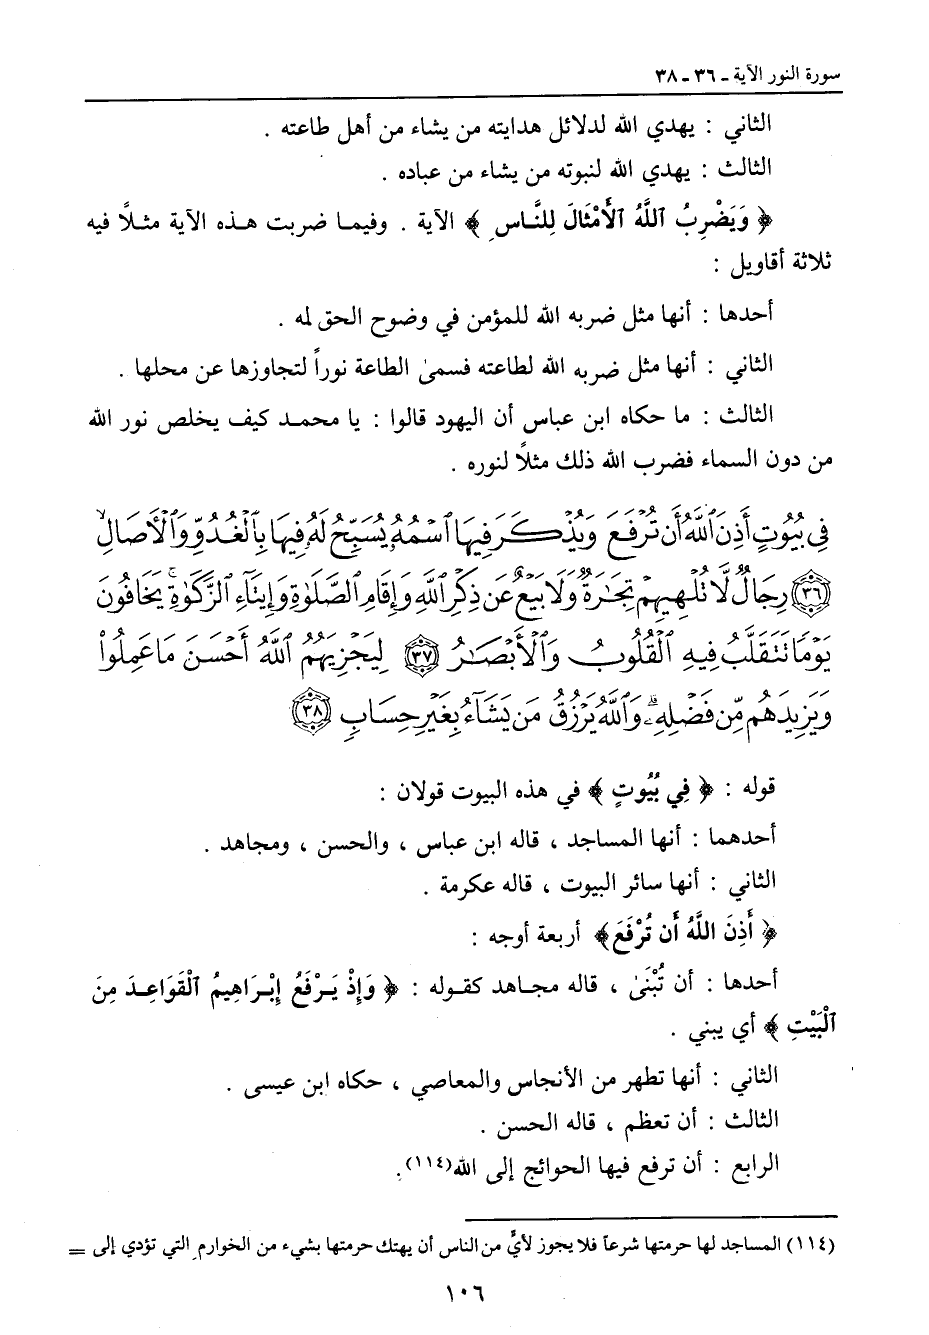 سورة النور الآية ـ ٣٦ ـ ٣٨
الثاني : يهدي الله لدلائل هدايته من يشاء من أهل طاعته .
الثالث : يهدي الله لنبوته من يشاء من عباده .
﴿ وَيَضْرِبُ اللَّهُ الْأَمْثَالَ لِلنَّاسِ ﴾ الآية . وفيما ضربت هذه الآية مثلاً فيه
ثلاثة أقاويل :
أحدها : أنها مثل ضربه الله للمؤمن في وضوح الحق له .
الثاني : أنها مثل ضربه الله لطاعته فسمىٰ الطاعة نوراً لتجاوزها عن محلها .
الثالث : ما حكاه ابن عباس أن اليهود قالوا : يا محمد كيف يخلص نور الله
من دون السماء فضرب الله ذلك مثلاً لنوره .
فِي بُيُوتٍ أَذِنَ ٱللَّهُ أَن تُرْفَعَ وَيُذْكَرَ فِيهَا ٱسْمُهُۥ يُسَبِّحُ لَهُۥ فِيهَا بِٱلْغُدُوِّ وَٱلْأَصَالِ
﴿٣٦﴾ رِجَالٌ لَّا تُلْهِيهِمْ تِجَٰرَةٌ وَلَا بَيْعٌ عَن ذِكْرِ ٱللَّهِ وَإِقَامِ ٱلصَّلَوٰةِ وَإِيتَآءِ ٱلزَّكَوٰةِ يَخَافُونَ
يَوْمًا تَتَقَلَّبُ فِيهِ ٱلْقُلُوبُ وَٱلْأَبْصَٰرُ ﴿٣٧﴾ لِيَجْزِيَهُمُ ٱللَّهُ أَحْسَنَ مَا عَمِلُوا۟
وَيَزِيدَهُم مِّن فَضْلِهِۦ وَٱللَّهُ يَرْزُقُ مَن يَشَآءُ بِغَيْرِ حِسَابٍ ﴿٣٨﴾
قوله : ﴿ فِي بُيُوتٍ ﴾ في هذه البيوت قولان :
أحدهما : أنها المساجد ، قاله ابن عباس ، والحسن ، ومجاهد .
الثاني : أنها سائر البيوت ، قاله عكرمة .
﴿ أَذِنَ اللَّهُ أَن تُرْفَعَ﴾ أربعة أوجه :
أحدها : أن تُبْنَىٰ ، قاله مجاهد كقوله : ﴿ وَإِذْ يَرْفَعُ إِبْرَاهِيمُ الْقَوَاعِدَ مِنَ
الْبَيْتِ ﴾ أي يبني .
الثاني : أنها تطهر من الأنجاس والمعاصي ، حكاه ابن عيسى .
الثالث : أن تعظم ، قاله الحسن .
الرابع : أن ترفع فيها الحوائج إلى الله(١١٤).
(١١٤) المساجد لها حرمتها شرعاً فلا يجوز لأيٍّ من الناس أن يهتك حرمتها بشيء من الخوارم التي تؤدي إلى =
١٠٦